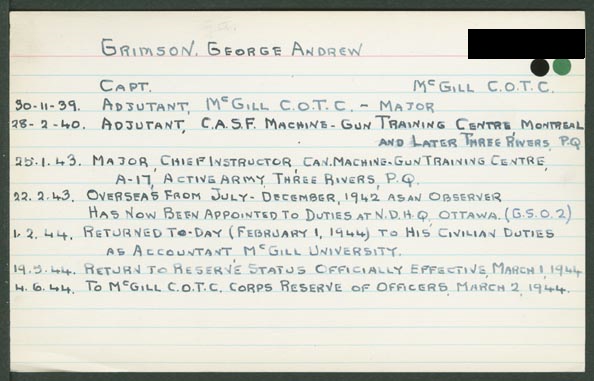 GRIMSON, GEORGE ANDREW
CAPT. McGILL C.O.T.C.
30-11-39. ADJUTANT, McGILL C.O.T.C. - MAJOR
28-2-40. ADJUTANT, C.A.S.F. MACHINE-GUN TRAINING CENTRE, MONTREAL
AND LATER THREE RIVERS, P.Q.
25.1.43. MAJOR, CHIEF INSTRUCTOR, CAN. MACHINE-GUN TRAINING CENTRE,
A-17, ACTIVE ARMY, THREE RIVERS, P.Q.
22.2.43. OVERSEAS FROM JULY-DECEMBER, 1942 AS AN OBSERVER
HAS NOW BEEN APPOINTED TO DUTIES AT N.D.H.Q, OTTAWA. (G.S.O.2)
1.2.44. RETURNED TO-DAY (FEBRUARY 1, 1944) TO HIS CIVILIAN DUTIES
AS ACCOUNTANT, McGILL UNIVERSITY.
19.5.44. RETURN TO RESERVE STATUS OFFICIALLY EFFECTIVE, MARCH 1, 1944
4.6.44. TO McGILL C.O.T.C. CORPS RESERVE OF OFFICERS, MARCH 2, 1944.